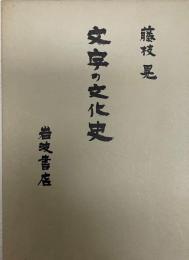 藤枝晃
文字の文化史
岩波書店